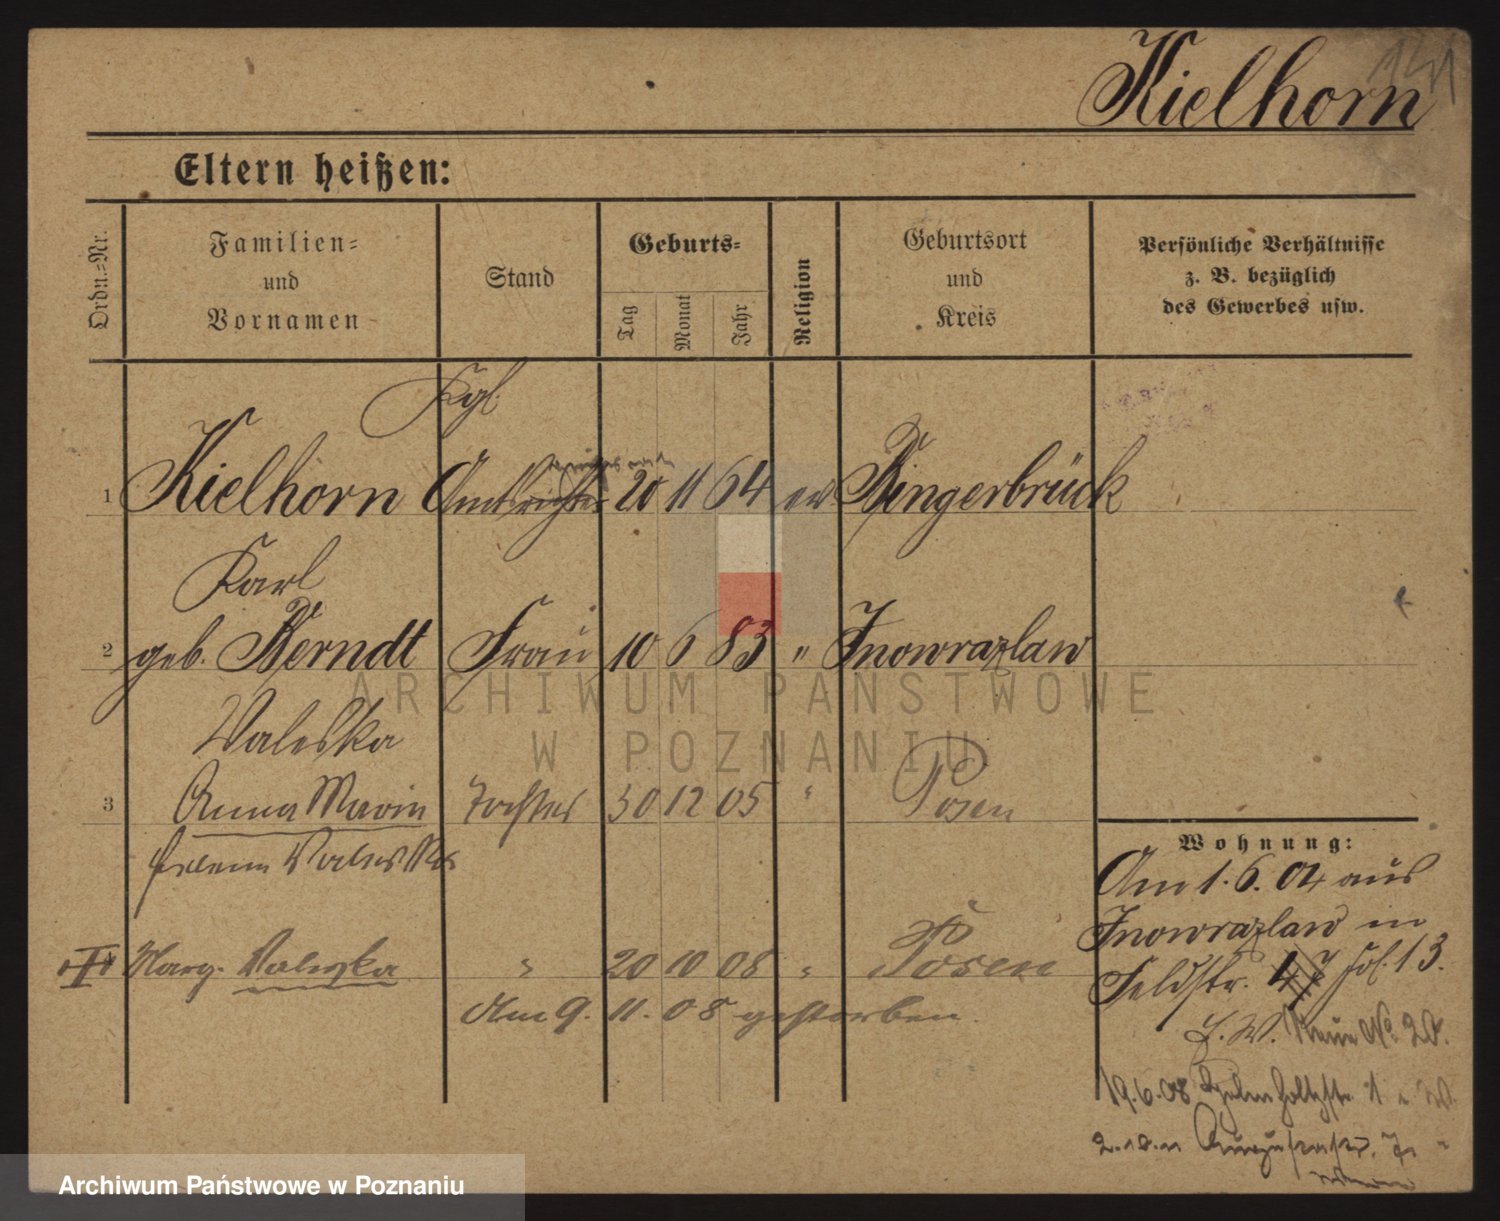 141
Kielhorn
Eltern heißen:
Ordn.=Nr.
Familien=
und
Vornamen
Stand
Geburts=
Tag
Monat
Jahr
Religion
Geburtsort
und
Kreis
Persönliche Verhältnisse
z. B. bezüglich
des Gewerbes usw.
Kgl.
1 Kielhorn Amtsrichter 20 11 64 ev. Bingerbrück
Karl
2 geb. Berndt Frau 10 6 83 " Inowrazlaw
Valeska
3 Anna Marie Tochter 30 12 05 " Posen
Helene Valeska
Marg. Valeska " 20 10 08 " Posen
Am 9. 11. 08 gestorben.
Wohnung:
Am 1. 6. 04 aus
Inowrazlaw in
Feldstr. 13.
Neue No. 20.
19.6.08 Helmholtzstr. 1
2.10.11 Augustastr.
ARCHIWUM PAŃSTWOWE
W POZNANIU
Archiwum Państwowe w Poznaniu